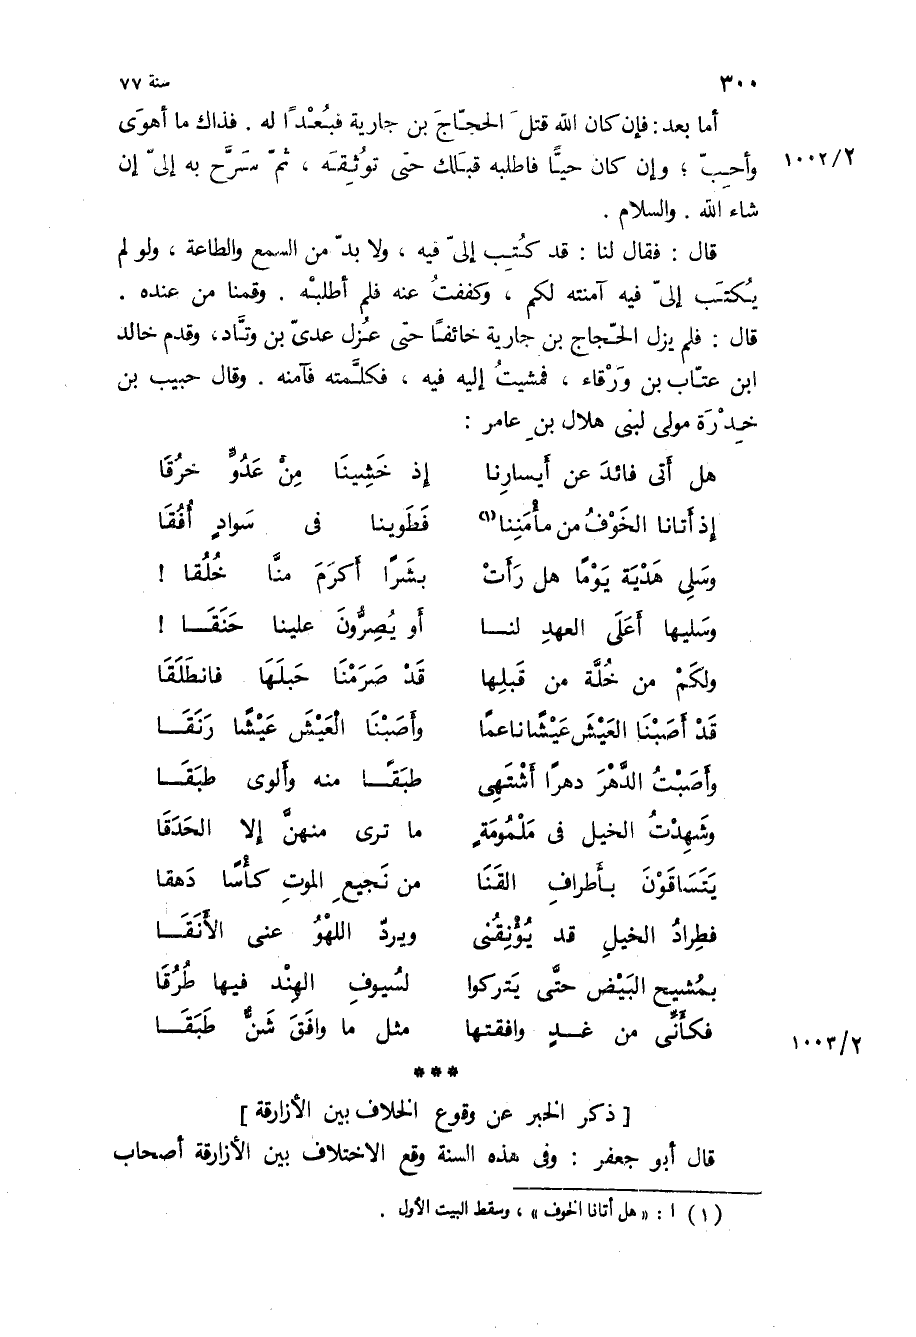 ٣٠٠ سنة ٧٧
أما بعد : فإن كان الله قتلَ الحجّاجَ بن جارية فبُعْدًا له . فذاك ما أهوَى
١٠٠٢/٢ وأحِبّ ؛ وإن كان حيًّا فاطلبه قبَلك حتى توُثِقَه ، ثمّ سَرَّح به إلىّ إن
شاء الله . والسلام .
قال : فقال لنا : قد كُتِب إلىّ فيه ، ولا بدّ من السمع والطاعة ، ولو لم
يُكتَب إلىّ فيه آمنته لكم ، وكففتُ عنه فلم أطلبْه . وقمنا من عنده .
قال : فلم يزل الحّجاج بن جارية خائفًا حتى عزُل عدىّ بن وتَّاد، وقدم خالد
ابن عتّاب بن وَرْقاء ، فمشيتُ إليه فيه ، فكلَّمته فآمنه . وقال حبيب بن
خِدْرَة مولى لبنى هلال بنِ عامر :
هل أتى فائدَ عن أيسارِنا إذ خَشِينَا مِنْ عَدُوٍّ خرُقَا
إذ أتانا الخَوْفُ من مأْمَنِنا(١) فَطَوينا فى سَوادٍ أُفُقَا
وسَلِى هَدْيَة يَوْمًا هل رَأَتْ بشَرًا أَكرَمَ منَّا خُلُقا !
وسَليها أعَلَى العهدِ لنــا أو يُصِرُّونَ علينا حَنَقَــا !
ولكَمْ من خُلَّة من قَبلِها قَدْ صَرَمْنَا حَبلَهَا فانطَلَقَا
قَدْ أصَبْنَا العَيْشَ عَيْشًا ناعمًا وأصَبْنَا الْعَيْشَ عَيْشًا رَنَقَــا
وأصَبْتُ الدَّهْرَ دهرًا أَشْتَهِى طبَقَــًا منه وألوى طبَقَــا
وشَهِدْتُ الخيل فى مَلْمُومَةٍ ما ترى منهنَّ إلا الحَدَقَا
يَتَسَاقَوْنَ بأَطرافِ القَنَا من نَجيعِ الموتِ كأْسًا دَهقا
فطِرادُ الخيلِ قد يُؤْنِقُنى ويردّ اللهْوُ عنى الأَنَقَــا
بمُشيحِ البَيْض حتَّى يَتركوا لسُيوفِ الهِنْد فيها طُرُقَا
١٠٠٣/٢ فكأَنِّى من غــدٍ وافقتها مثل ما وافَقَ شَنٌّ طَبَقَــا
***
[ ذكر الخبر عن وقوع الخلاف بين الأزارقة ]
قال أبو جعفر : وفى هذه السنة وقع الاختلاف بين الأزارقة أصحاب
(١) ا : « هل أتانا الخوف » ، وسقط البيت الأول .